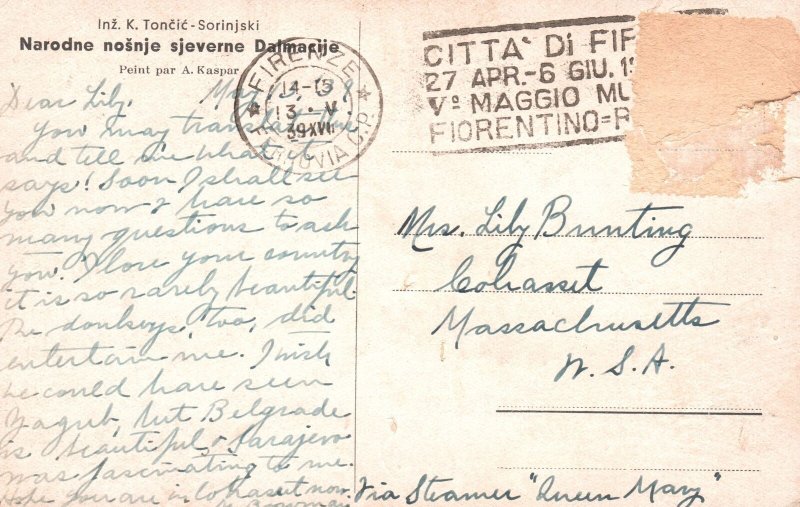 Inž. K. Tončić-Sorinjski
Narodne nošnje sjeverne Dalmacije
Peint par A. Kaspar
FIRENZE
14-15
13 · V.
39 XVII
FERROVIA C.P.
CITTA' Di FIR
27 APR.-6 GIU. 1
Vº MAGGIO MU
FIORENTINO=
Dear Lily, May
You may translate this
and tell me what it
says! Soon I shall see
you now & have so
many questions to ask
you. I love your country
it is so rarely beautiful.
The donkeys, too, did
entertain me. I wish
we could have seen
Zagreb, but Belgrade
is beautiful & Sarajevo
was fascinating to me.
Hope you are in Cohasset now.
Mrs. Lily Bunting
Cohasset
Massachusetts
U.S.A.
Via Steamer "Queen Mary"